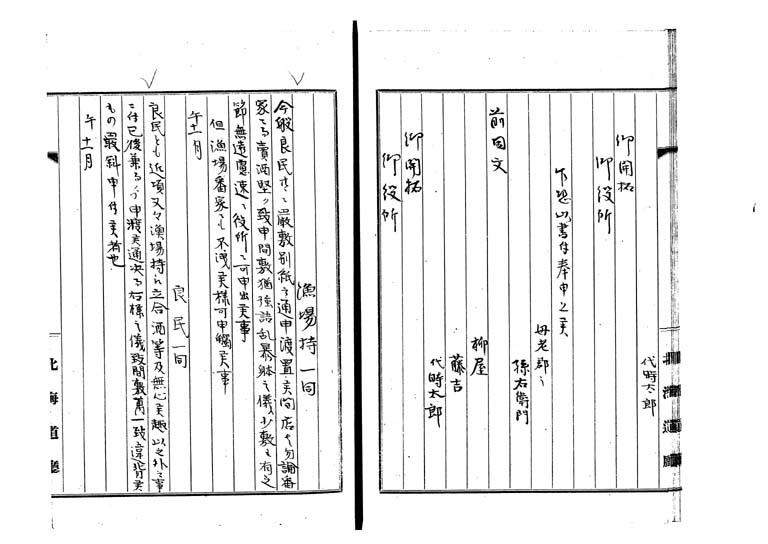 代時太郎
御開拓
御役所
乍恐以書付奉申上候
母老郡之
孫右衛門
前同文
柳屋
藤吉
代時太郎
御開拓
御役所
漁場持一同
今般良民共え厳敷別紙之通申渡置候間店は勿論番
家ニても売酒堅く致申間敷猶強語乱暴躰之儀少敷も有之
節無遠慮速ニ役所え可申出候事
但漁場番家ニも不洩候様可申触候事
午十一月
良民一同
良民とも近頃又々漁場持え立合酒等及無心候趣以之外之事
ニ付已後兼而より申渡候通決而右様之儀致間敷万一致違背候
もの厳科申付候者也
午十一月
北海道庁